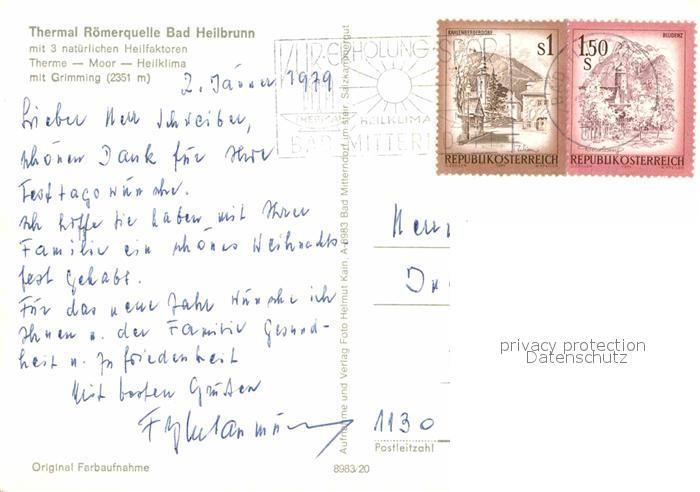 Thermal Römerquelle Bad Heilbrunn
mit 3 natürlichen Heilfaktoren
Therme — Moor — Heilklima
mit Grimming (2351 m)
2. Jänner 1979
Lieber Herr Schreiber,
schönen Dank für Ihre
Festtagswünsche.
Ich hoffe Sie haben mit Ihrer
Familie ein schönes Weihnachts
fest gehabt.
Für das neue Jahr wünsche ich
Ihnen u. der Familie Gesund-
heit u. Zufriedenheit
Mit besten Grüßen
Original Farbaufnahme
Aufnahme und Verlag Foto Helmut Kain, A-8983 Bad Mitterndorf im steir. Salzkammergut
8983/20
KUR·ERHOLUNG·SPORT
THERMAL HEILKLIMA
BAD MITTERNDORF
KAHLENBERGERDORF
S1
REPUBLIKÖSTERREICH
BLUDENZ
1.50
S
REPUBLIKÖSTERREICH
Herrn
1130
Postleitzahl
privacy protection
Datenschutz